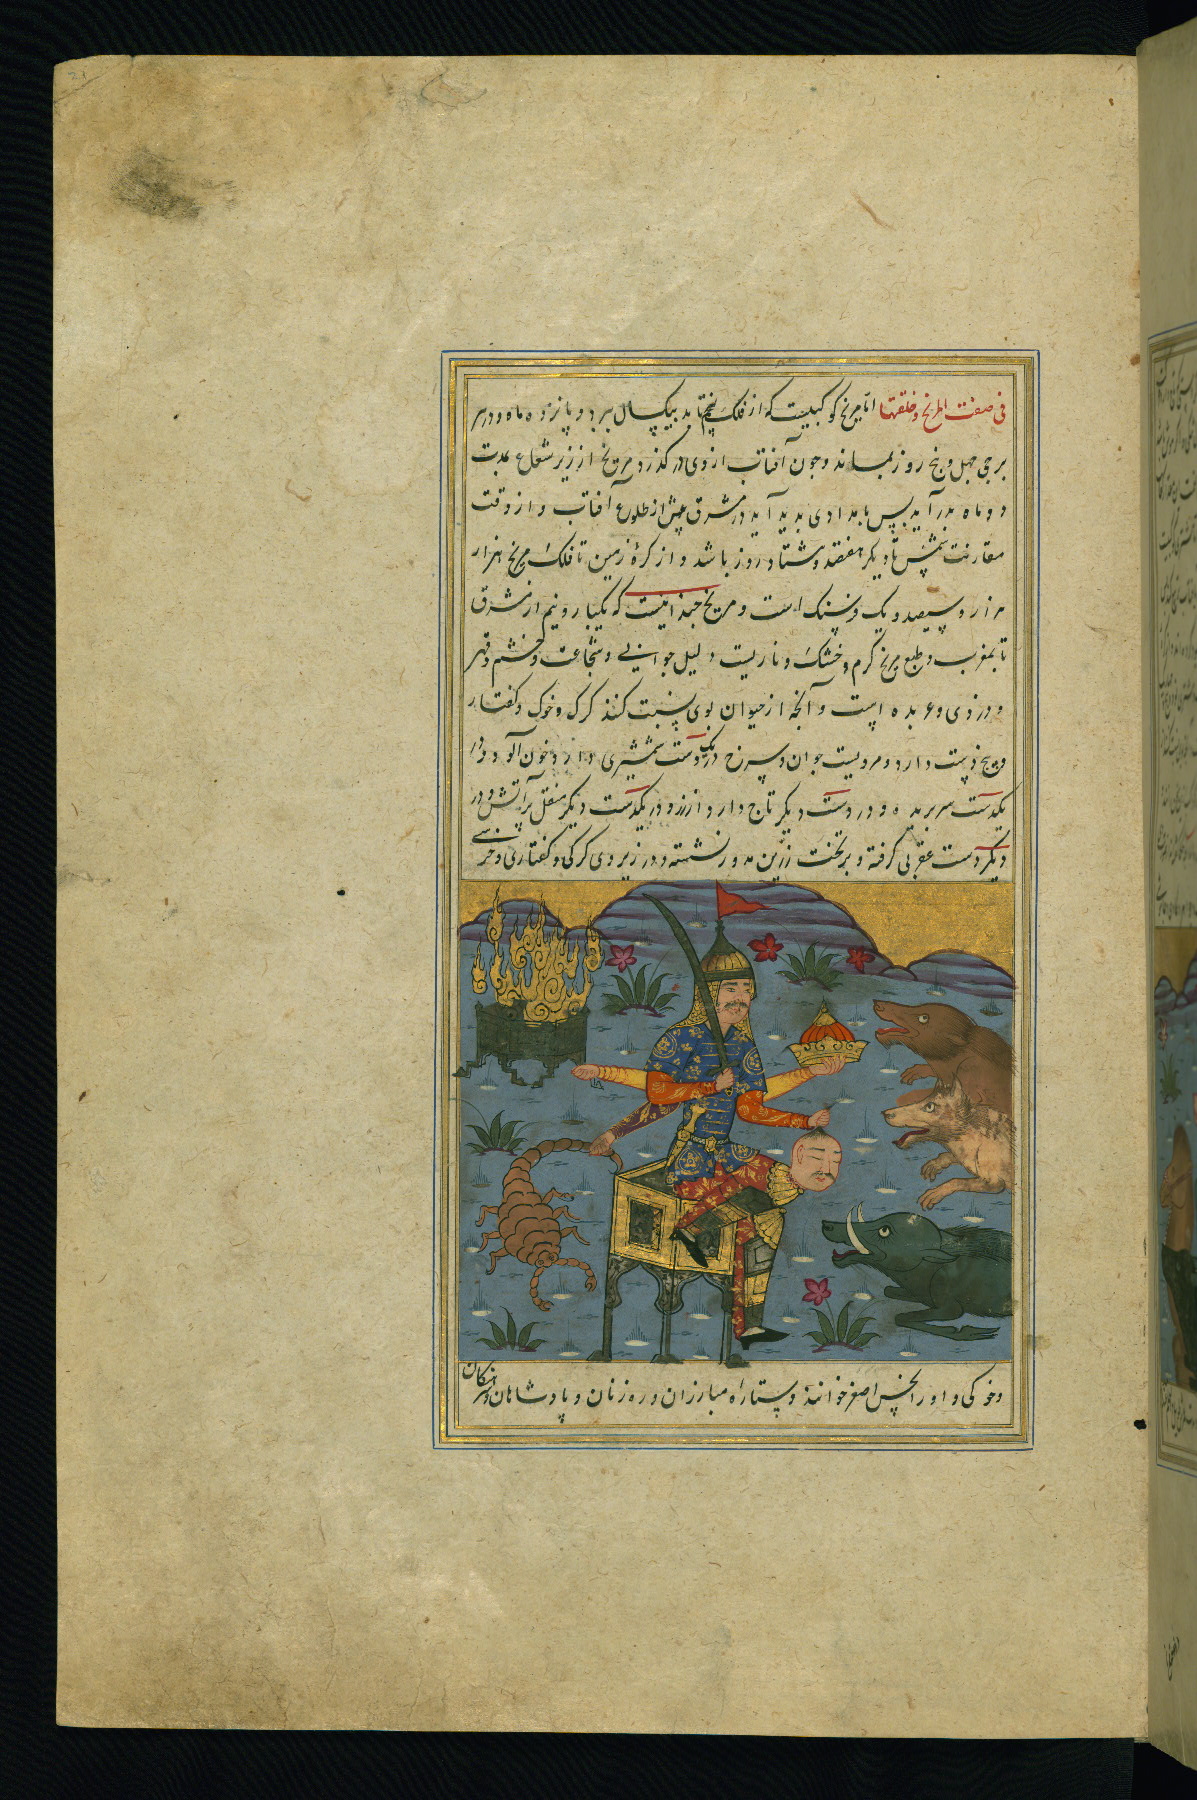 فی صفت المریخ و خلقتها اما مریخ کوکبیست که از فلک پنجم تابد بیکسال ببرد و پانزده ماه و در هر
برجی چهل و پنج روز بماند و چون آفتاب ازوی درگذرد مریخ از زیر شعاع بمدت
دو ماه بدر آید پس بامدادی بدید آید در مشرق پیش از طلوع آفتاب و از وقت
مقارنت شمس تا دیکر هفصد و هشتاد روز باشد و از کرهٔ زمین تا فلک مریخ هزار
هزار و سیصد و یک فرسنک است و مریخ چندانیست که یکبار و نیم از مشرق
تا بمغرب و طبع مریخ کرم و خشک و ناریست دلیل جوانی و شجاعت و خشم و قهر
و دزدی و عربده است و آنچه از حیوان بوی نسبت کنند کرک و خوک و کفتار
و پنج دست دارد و مردیست جوان و سرخ در یکدست شمشیری دارد خون آلود و در
یکدست سر بریده و در دست دیکر تاج دارد از زر و در یکدست دیکر منقل پر آتش و در
دیکر دست عقربی کرفته و بر تخت زرین مدور نشسته و در زیر وی کرکی و کفتاری و خرسی
و خوکی و او را نحس اصغر خوانند و ستاره مبارزان و ره زنان و پادشاهان و